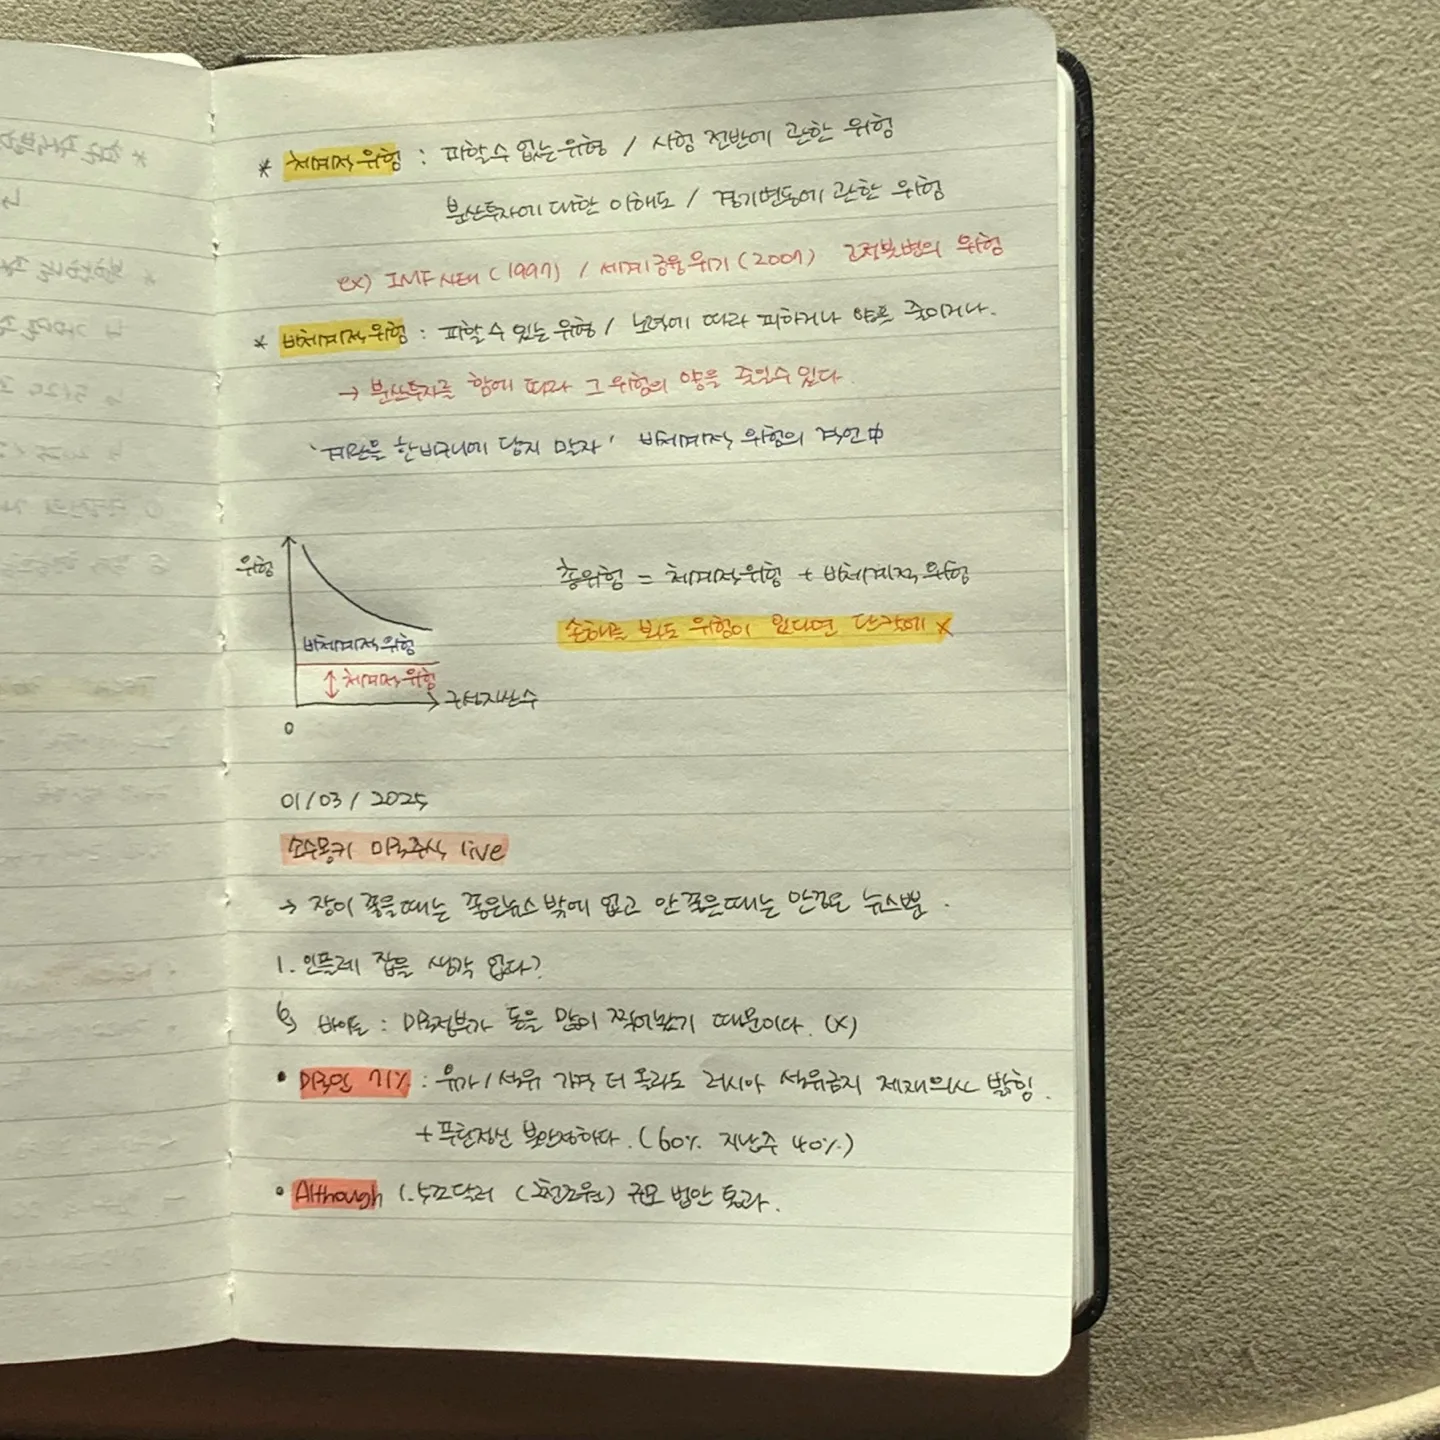 * 체계적 위험 : 피할 수 없는 위험 / 시험 전반에 관한 위험
분산투자에 대한 이해도 / 경기변동에 관한 위험
ex) IMF사태 (1997) / 세계금융위기 (2007) 고정불변의 위험
* 비체계적 위험 : 피할 수 있는 위험 / 노력에 따라 피하거나 양을 줄이거나.
→ 분산투자를 함에 따라 그 위험의 양을 줄일 수 있다.
'계란을 한바구니에 담지 말자' 비체계적 위험의 격언中
위험
비체계적 위험
↕ 체계적 위험
구성자산수
0
총위험 = 체계적 위험 + 비체계적 위험
손해를 봐도 위험이 있다면 단칼에 X
01/03/2025
소수몽키 미국주식 live
→ 장이 좋을때는 좋은뉴스밖에 없고 안 좋은때는 안좋은 뉴스뿐.
1. 인플레 잡을 생각 없다?
바이든 : 미국정부가 돈을 많이 찍어놨기 때문이다. (X)
• 미국인 71% : 유가/석유 가격 더 올라도 러시아 석유금지 제재의사 밝힘.
+ 푸틴정신 불안정하다. (60% 지난주 40%)
• Although 1.5조달러 (2천조원) 규모 법안 통과.